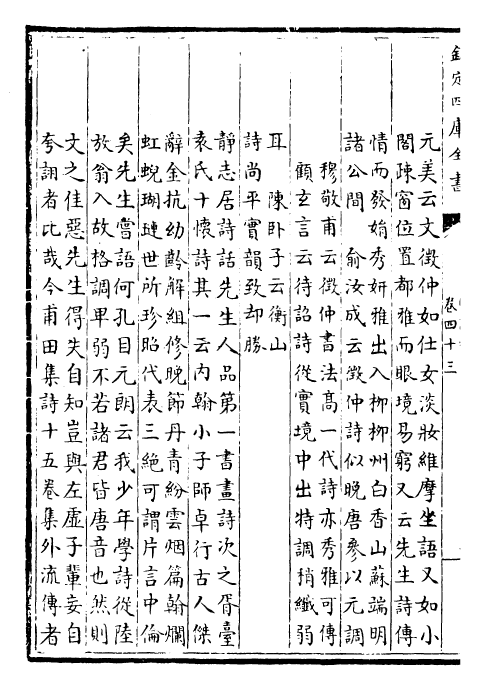 欽定四庫全書
卷四十三
元美云文徵仲如仕女淡妝維摩坐語又如小
閣疎窗位置都雅而眼境易窮又云先生詩傳
情而發娟秀妍雅出入柳柳州白香山蘇端明
諸公間　俞汝成云徵仲詩似晚唐參以元調
穆敬甫云徵仲書法髙一代詩亦秀雅可傳
顧玄言云待詔詩從實境中出特調稍纖弱
耳　陳卧子云衡山
詩尚平實韻致却勝
靜志居詩話先生人品第一書畫詩次之胥臺
袁氏十懷詩其一云内翰小子師卓行古人傑
辭金抗幼齡解組修晚節丹青紛雲烟篇翰爛
虹蜺瑚璉世所珍昭代表三絶可謂片言中倫
矣先生嘗語何孔目元朗云我少年學詩從陸
放翁入故格調卑弱不若諸君皆唐音也然則
文之佳惡先生得失自知豈與左虛子輩妄自
夸詡者比哉今甫田集詩十五卷集外流傳者